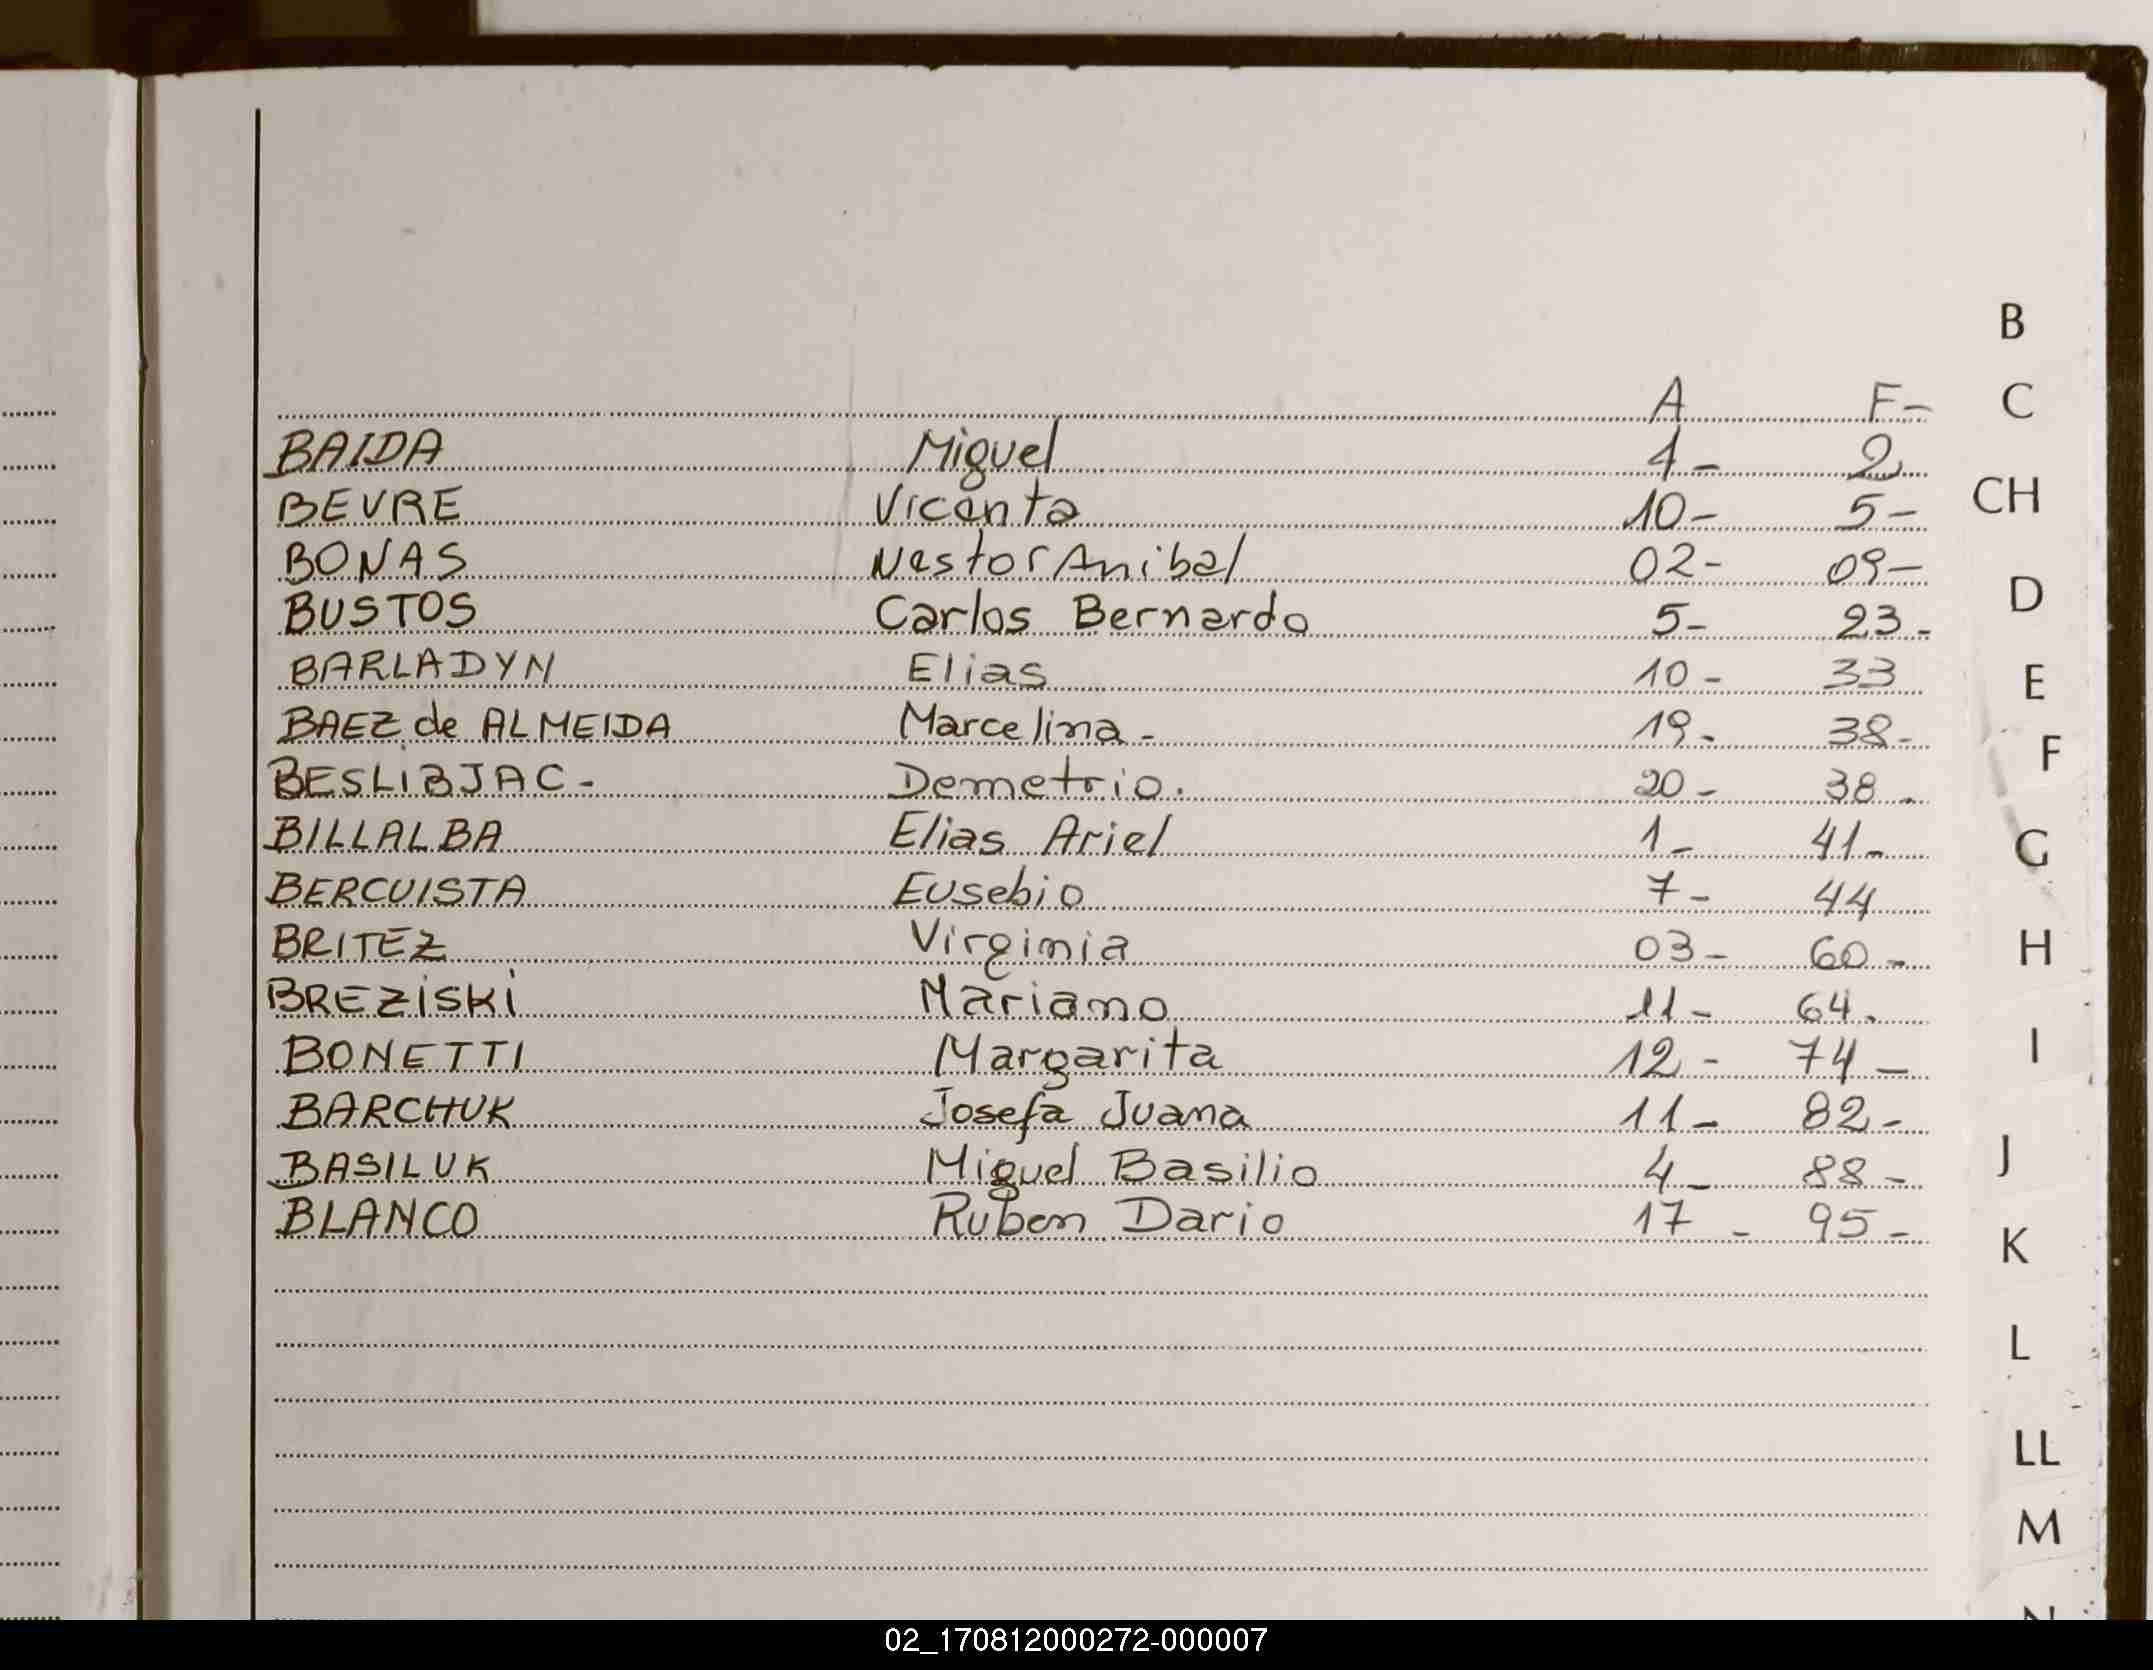 A F-
BAIDA Miguel 1- 2
BEVRE Vicenta 10- 5-
BONAS Nestor Anibal 02- 09-
BUSTOS Carlos Bernardo 5- 23-
BARLADYN Elias 10- 33
BAEZ de ALMEIDA Marcelina- 19- 38-
BESLIBJAC- Demetrio. 20- 38.
BILLALBA Elias Ariel 1- 41-
BERCUISTA Eusebio 7- 44
BRITEZ Virginia 03- 60-
BREZISKI Mariano 11- 64.
BONETTI Margarita 12- 74-
BARCHUK Josefa Juana 11- 82-
BASILUK Miguel Basilio 4- 88-
BLANCO Ruben Dario 17- 95-
B
C
CH
D
E
F
G
H
I
J
K
L
LL
M
02_170812000272-000007